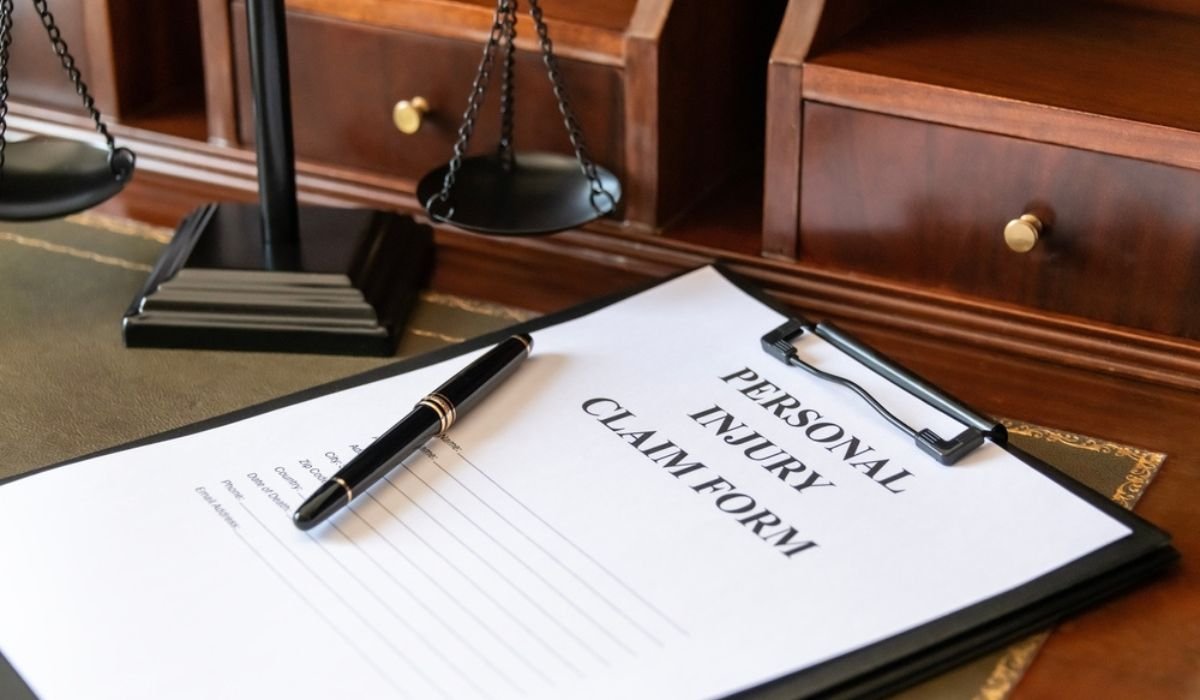 PERSONAL
INJURY
CLAIM FORM
Name:
City:
Zip Code:
Country:
Date of Death:
Phone:
Email Address: